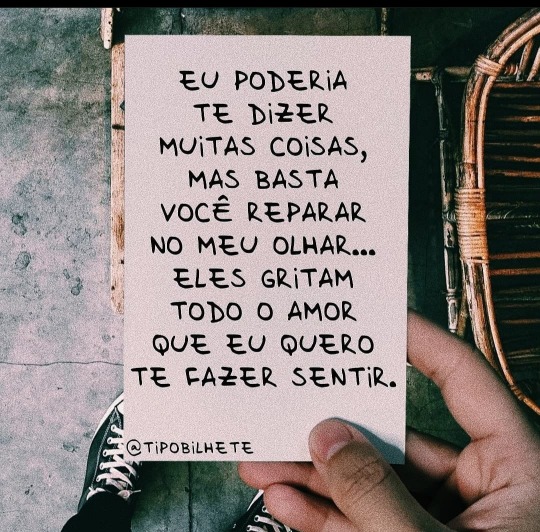 EU PODERiA
TE DiZER
MUiTAS COiSAS,
MAS BASTA
VOCÊ REPARAR
NO MEU OLHAR...
ELES GRiTAM
TODO O AMOR
QUE EU QUERO
TE FAZER SENTiR.
@TiPOBiLHETE